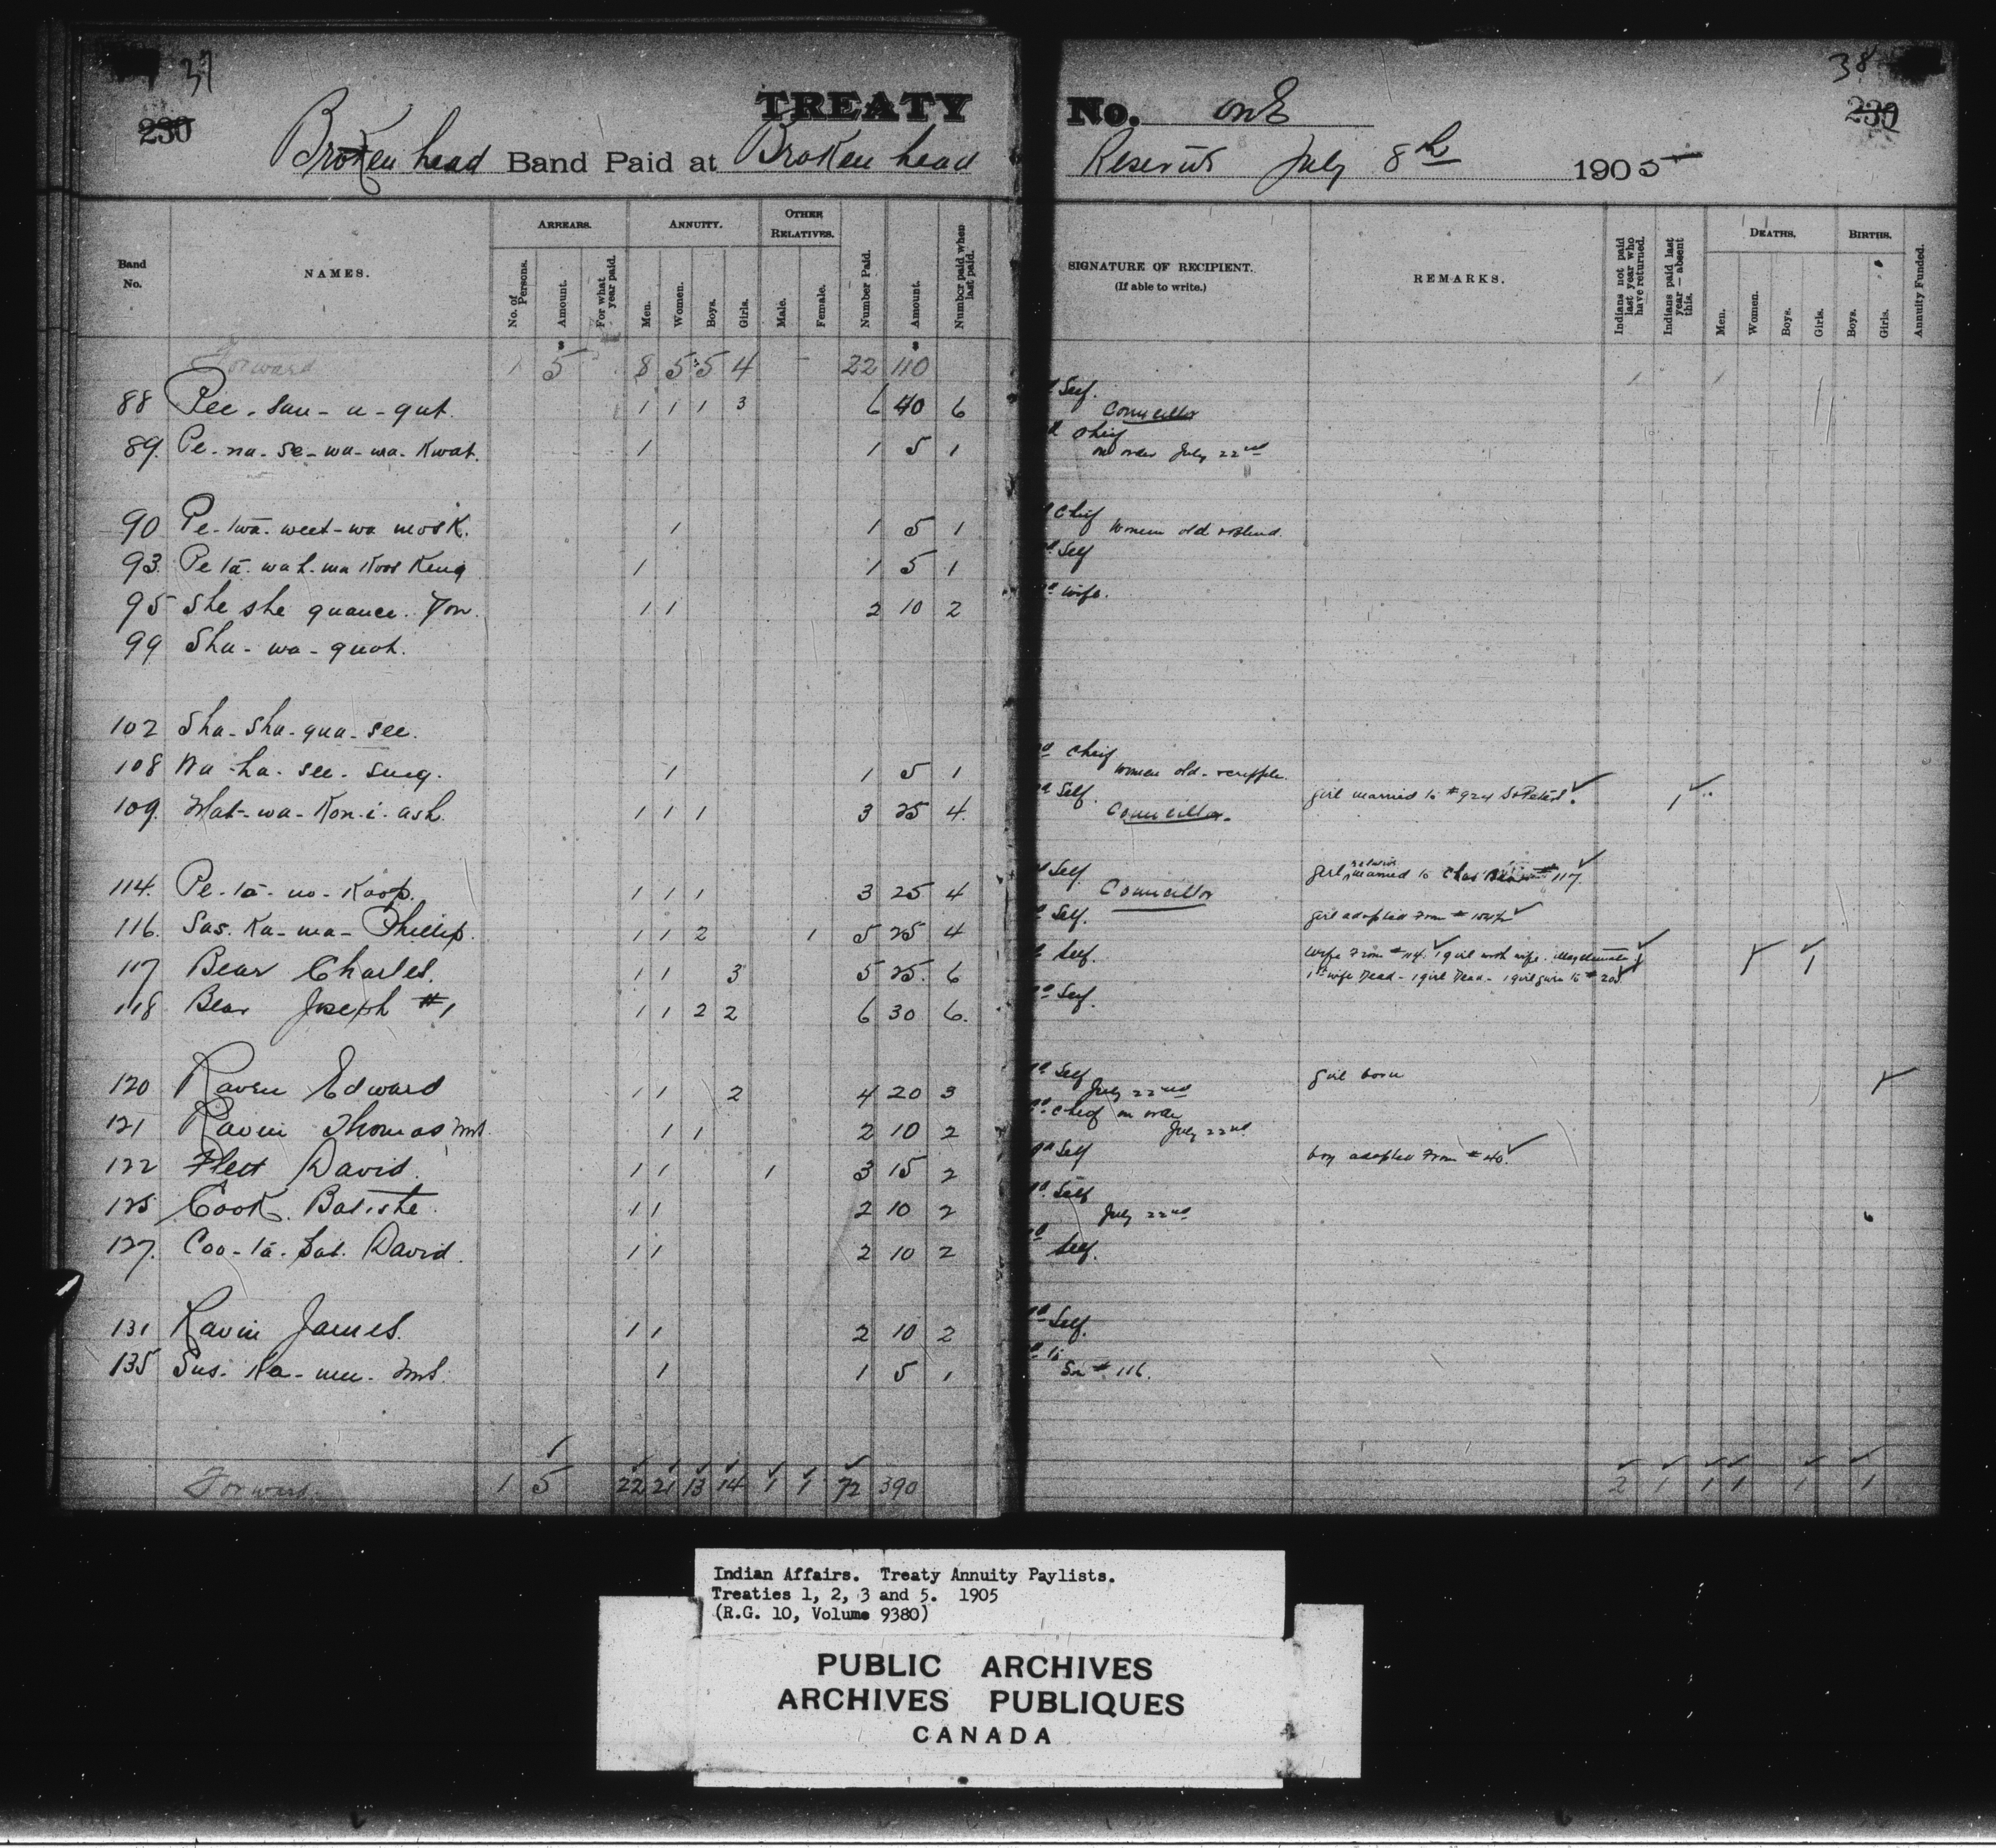 37
38
230
239
TREATY No. one
Broken head Band Paid at Broken head Reserve July 8th 1905
Band No.
NAMES.
ARREARS.
No. of Persons.
Amount.
For what year paid.
ANNUITY.
Men.
Women.
Boys.
Girls.
OTHER RELATIVES.
Male.
Female.
Number Paid.
Amount.
Number paid when last paid.
SIGNATURE OF RECIPIENT.
(If able to write.)
REMARKS.
Indians not paid last year who have returned.
Indians paid last year — absent this.
DEATHS.
Men.
Women.
Boys.
Girls.
BIRTHS.
Boys.
Girls.
Annuity Funded.
$ $
Forward 1 5 8 5 5 4 - 22 110 1 1
88 Pee-sau-a-qut. 1 1 1 3 6 40 6 Self. Councillor
89. Pe-na-se-wa-wa-Kwat. 1 1 5 1 Chief on order July 22nd
90 Pe-twā-weet-wa mosk. 1 1 5 1 Chief Women old & blind.
93. Pe tā-wah-ma Koos Keng 1 1 5 1 Self
95 She she quance. Tom. 1 1 2 10 2 wife.
99 Sha-wa-quot.
102 Sha-Sha-qua-see.
108 Na-ha-see-sung. 1 1 5 1 Chief Women old - cripple.
109. Mat-wa-Kon-i-ash. 1 1 1 3 25 4. Self. Councillor. girl married to #924 St Peters. 1
114. Pe-tā-no-Koop. 1 1 1 3 25 4 Self Councillor girl married to Chas Bear #117.
116. Sas-Ka-ma-Phillip. 1 1 2 1 5 25 4 Self. girl adopted from
117 Bear Charles. 1 1 3 5 25. 6 Self. Wife from #114. 1 girl with wife. illegitimate. 1
1st wife Dead - 1 girl Dead - 1 girl given to # 20. 1 1
118 Bear Joseph #1 1 1 2 2 6 30 6. Self.
120 Raven Edward 1 1 2 4 20 3 Self July 22nd girl born 1
121 Raven Thomas Mrs. 1 1 2 10 2 Chief on order July 22nd
122 Flett David. 1 1 1 3 15 2 Self boy adopted from # 40.
125 Cook. Batiste. 1 1 2 10 2 Self July 22nd
127. Coo-tā-Sat. David. 1 1 2 10 2 Self.
131 Raven James. 1 1 2 10 2 Self.
135 Sus-Ka-mu. Mrs. 1 1 5 1 to Son # 116.
Forward. 1 5 22 21 13 14 1 1 72 390 2 1 1 1 1 1
Indian Affairs. Treaty Annuity Paylists.
Treaties 1, 2, 3 and 5. 1905
(R.G. 10, Volume 9380)
PUBLIC ARCHIVES
ARCHIVES PUBLIQUES
CANADA